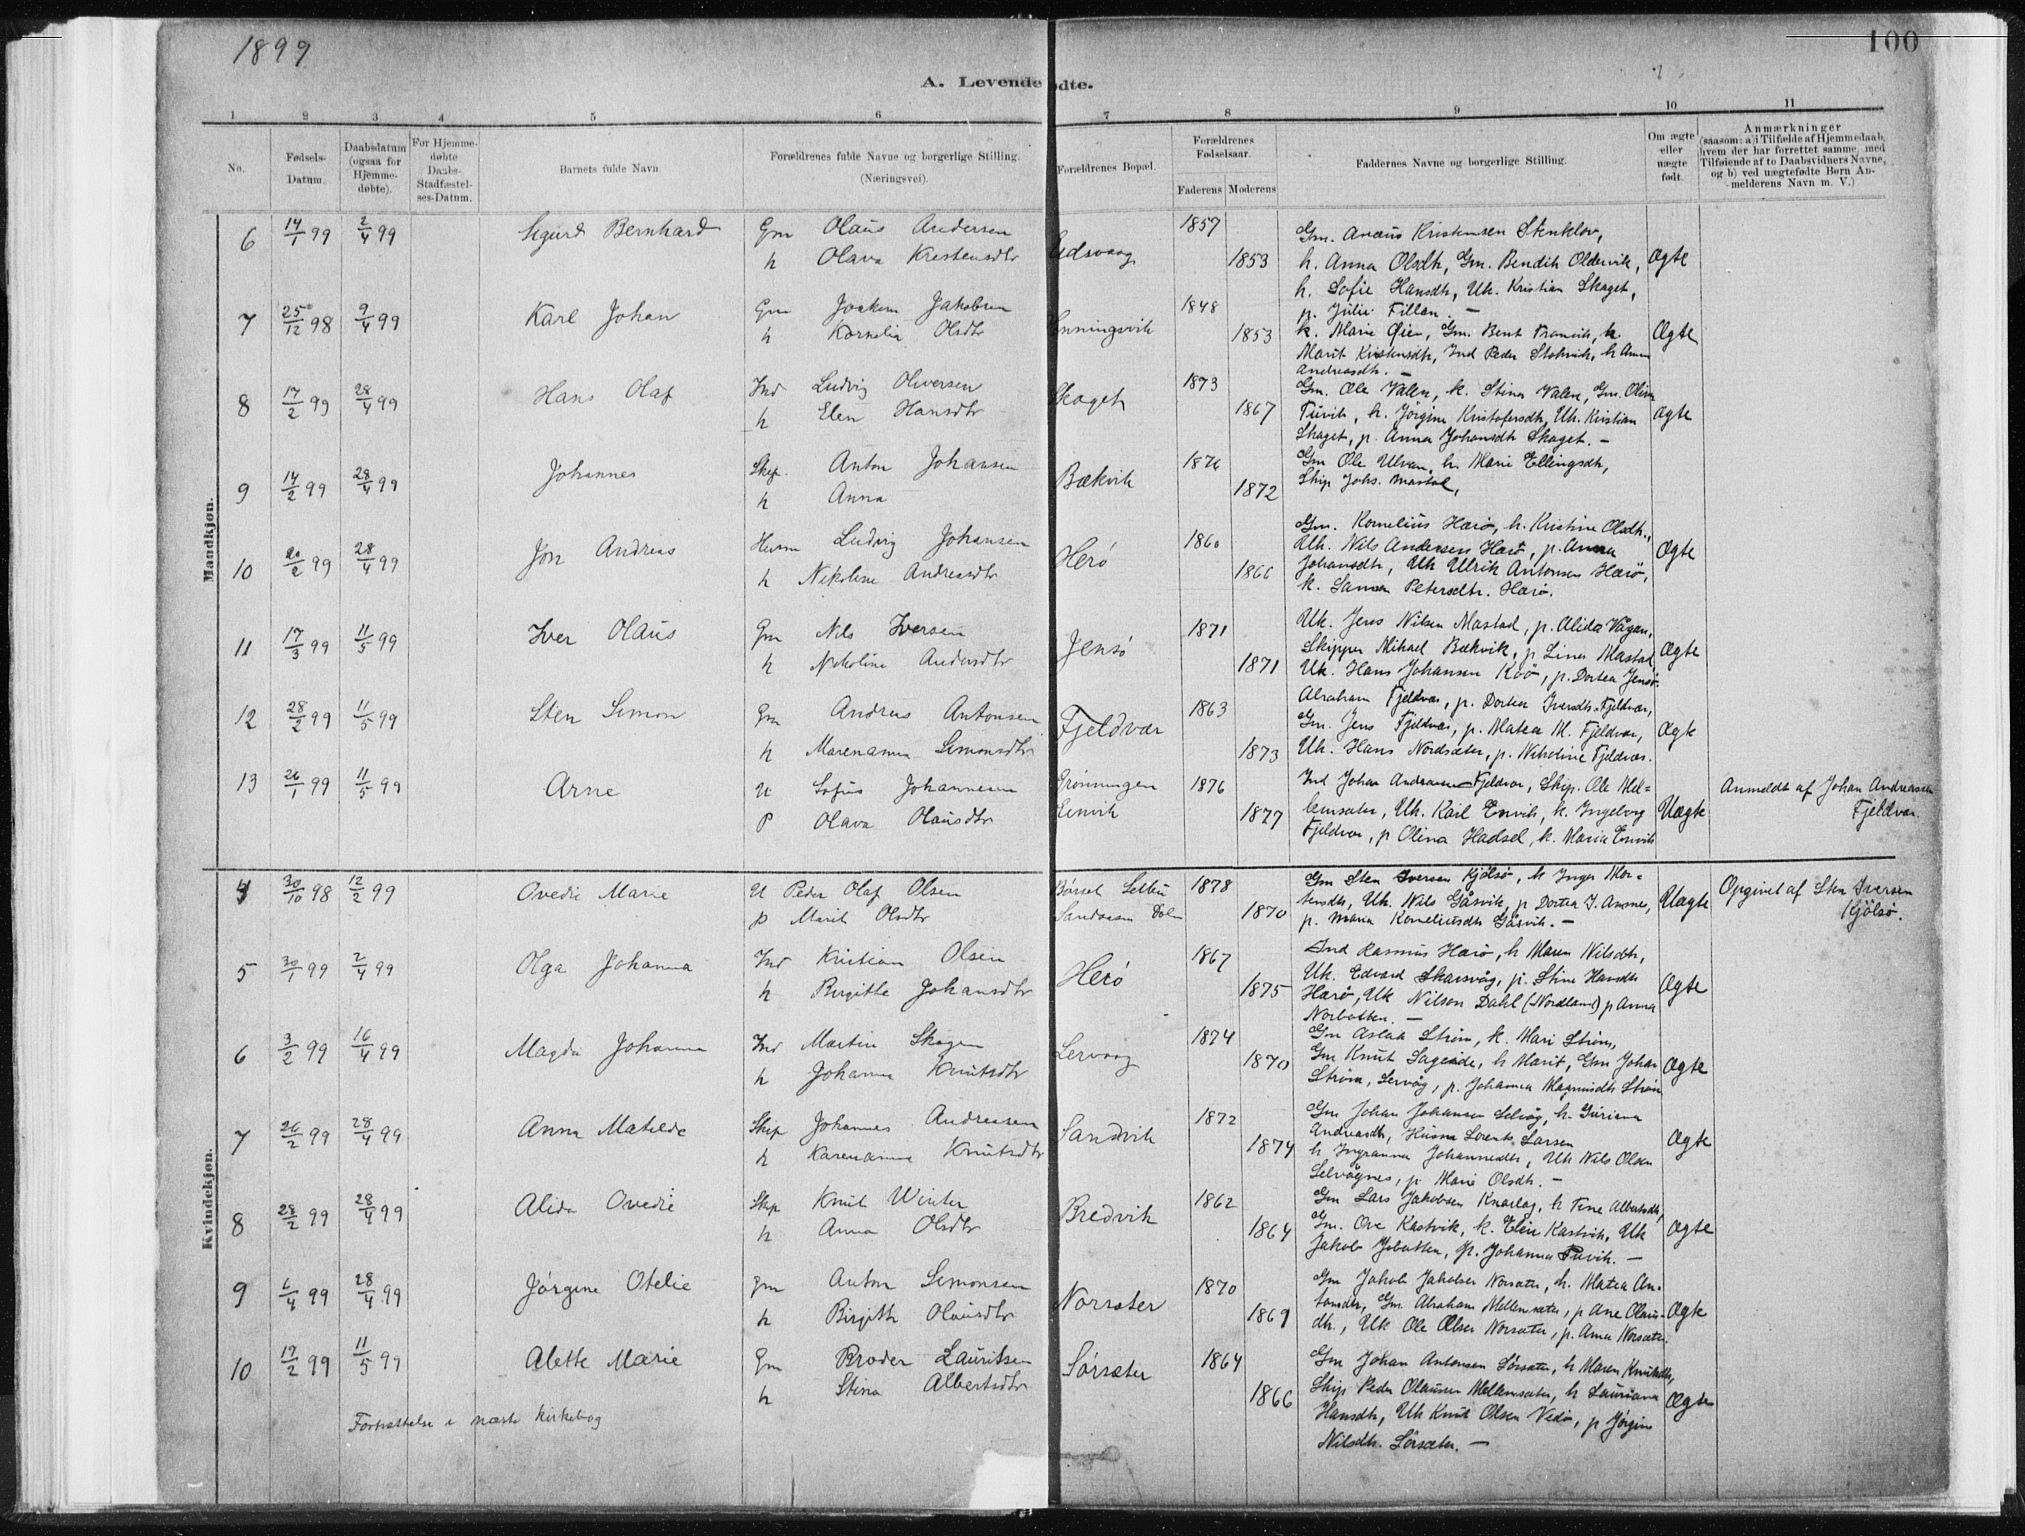 1899
100
A. Levendefødte.
1 2 3 4 5 6 7 8 9 10 11
No.
Fødsels-Datum.
Daabsdatum (ogsaa for Hjemme-døbte).
For Hjemme-døbte Daabs-Stadfæstel-ses-Datum.
Barnets fulde Navn
Forældrenes fulde Navne og borgerlige Stilling. (Næringsvei).
Forældrenes Bopæl.
Forældrenes Fødselsaar.
Faderens Moderens
Faddernes Navne og borgerlige Stilling.
Om ægte eller uægte født.
Anmærkninger (saasom: a) i Tilfælde af Hjemmedaab, hvem der har forrettet samme, med Tilføiende af to Daabsvidners Navne, og b) ved uægtefødte Børn An-melderens Navn m. V.)
Mandkjøn.
6 14/1 99 2/4 99 Sigurd Bernhard Gm Olaus Andersen Eidsvaag 1857 Gm. Kristensen Stenklov,
h Olava Krestensdtr 1853 h. Anna Olsdtr, Gm. Bendik Oldervik, Ægte
h. Sofie Hansdtr, Uk. Kristian Skaget,
p. Julie Fillan. —
7 25/12 98 9/4 99 Karl Johan Gm Joakim Jakobsen Henningsvik 1848
h Kornelia Olsdtr 1853 k. Marie Øien, Gm. Bent Framvik, h Ægte
Marit Kristensdtr, Ind Peder Stokvik, h Anna
Andreasdtr. —
8 17/2 99 28/4 99 Hans Olaf Ind Ludvig Oliversen Skaget 1873 Gm. Ole Valen, k. Stina Valen, Gm. Oliver
h Elen Hansdtr 1867 Tuvik, h. Jørgine Kristofersdtr, Uk. Kristian Ægte
Skaget, p. Anna Johansdtr Skaget. —
9 14/2 99 28/4 99 Johannes Skip. Anton Johansen Bækvik 1876 Gm Ole Ulvan, h. Marie Ellingsdtr,
h Anna 1872 Skip Johs. Mastad,
10 20/2 99 28/4 99 Jon Andreas Husm Ludvig Johansen Herø 1860 Gm. Kornelius Hærø, h. Kristine Olsdtr,
h Nikoline Andreasdtr 1866 Uk. Nils Andersen Hærø, p. Anna Ægte
Johansdtr, Uk Ulrik Antonsen Hærø,
k. Petersdtr. Hærø.
11 17/3 99 11/5 99 Iver Olaus Gm Nils Iversen Jensø 1871 Uk. Jens Nilsen Mastad, p. Alida Vågan,
h Nikoline Andersdtr 1871 Skipper Mikael Bækvik, p Lina Mastad, Ægte
Uk. Hans Johansen Koø, p. Dortea Jensø.
12 28/2 99 11/5 99 Sten Simon Gm Andreas Antonsen Fjeldvær 1863 Abraham Fjeldvær, p. Dortea Iversdtr Fjeldvær,
h Marenanna Simonsdtr 1873 Gm. Jens Fjeldvær, p. Matea M. Fjeldvær, Ægte
Uk. Hans Nordsæter, p. Nikoline Fjeldvær.
13 26/1 99 11/5 99 Arne U Sofus Johannesen Grønningen 1876 Ind Johan Andreasen Fjeldvær, Skip. Ole Mel- Anmeldt af Johan Andreassen
P Olava Olausdtr Einvik 1877 lemsæter, Uk. Karl Envik, k. Ingeborg Uægte Fjeldvær.
Fjeldvær, p Olina Hadsel, k. Maria Envik
Kvindekjøn.
4 30/10 98 12/2 99 Ovedie Marie U Peder Olaf Olsen Børset Selbu 1878 Gm Sten Iversen Kjölsø, h Inger Mor- Opgivet af Sten Iversen
p Marit Olsdtr Sandaasen 1870 tensdtr, Uk. Nils Gåsvik, p Dortea J. Uægte Kjölsø.
p. Maria Korneliusdtr Gåsvik. —
5 30/1 99 2/4 99 Olga Johanna Ind Kristian Olsen Herø 1867 Ind Rasmus Hærø, h Maren Nilsdtr,
h Birgitte Johansdtr 1875 Uk. Edvard Skarsvåg, p. Stine Hansdtr Ægte
Hærø, Uk Nilson Dahl (Nordland) p Anna
Norbotten. —
6 3/2 99 16/4 99 Magda Johanna Ind Martin Skagen Lervaag 1874 Gm Aslak Strøm, k. Mari Strøm,
h Johanna Knutsdtr 1870 Gm Knut Sageide, h Marit, Gm Johan Ægte
Strøm, Lervåg, p. Johanna Magnusdtr Strøm
7 26/2 99 28/4 99 Anna Matilde Skip Johannes Andreasen Sandvik 1872 Gm Johan Johansen Selvåg, h. Guriana
h Karenanna Knutsdtr 1874 Andreasdtr, Husm Lorents Larsen Ægte
h Ingranna Johannesdtr, Uk Nils Olsen
Selvågnes, p Marie Olsdtr. —
8 28/2 99 28/4 99 Alida Ovedie Skip Knut Winter Bredvik 1862 Gm Lars Jakobsen Knarlag, h Albertsdtr,
h Anna Olsdtr 1864 Gm. Ove Kastvik, k. Elen Kastvik, Uk Ægte
Jakob Jobotten, p. Johanna Tuvik. —
9 6/4 99 28/4 99 Jørgine Otelie Gm Anton Simonsen Norsæter 1870 Gm Jakob Jakobsen Norsæter, h. Matea An-
h Birgitte Olausdtr 1869 tonsdtr, Gm. Abraham Mellemsæter, p Ane Olaus- Ægte
dtr, Uk Ole Olsen Norsæter, p. Anna Norsæter.
10 19/2 99 11/5 99 Alette Marie Gm Broder Lauritsen Sørsæter 1864 Gm Johan Antonsen Sørsæter, h Maren Knutsdtr,
h Stina Albertsdtr 1866 Skip Peder Olausen Mellemsæter, h Lauriana Ægte
Hansdtr, Uk Knut Olsen Vedø, p Jørgine
Nilsdtr. Sørsæter. —
Fortsættelse i næste kirkebog